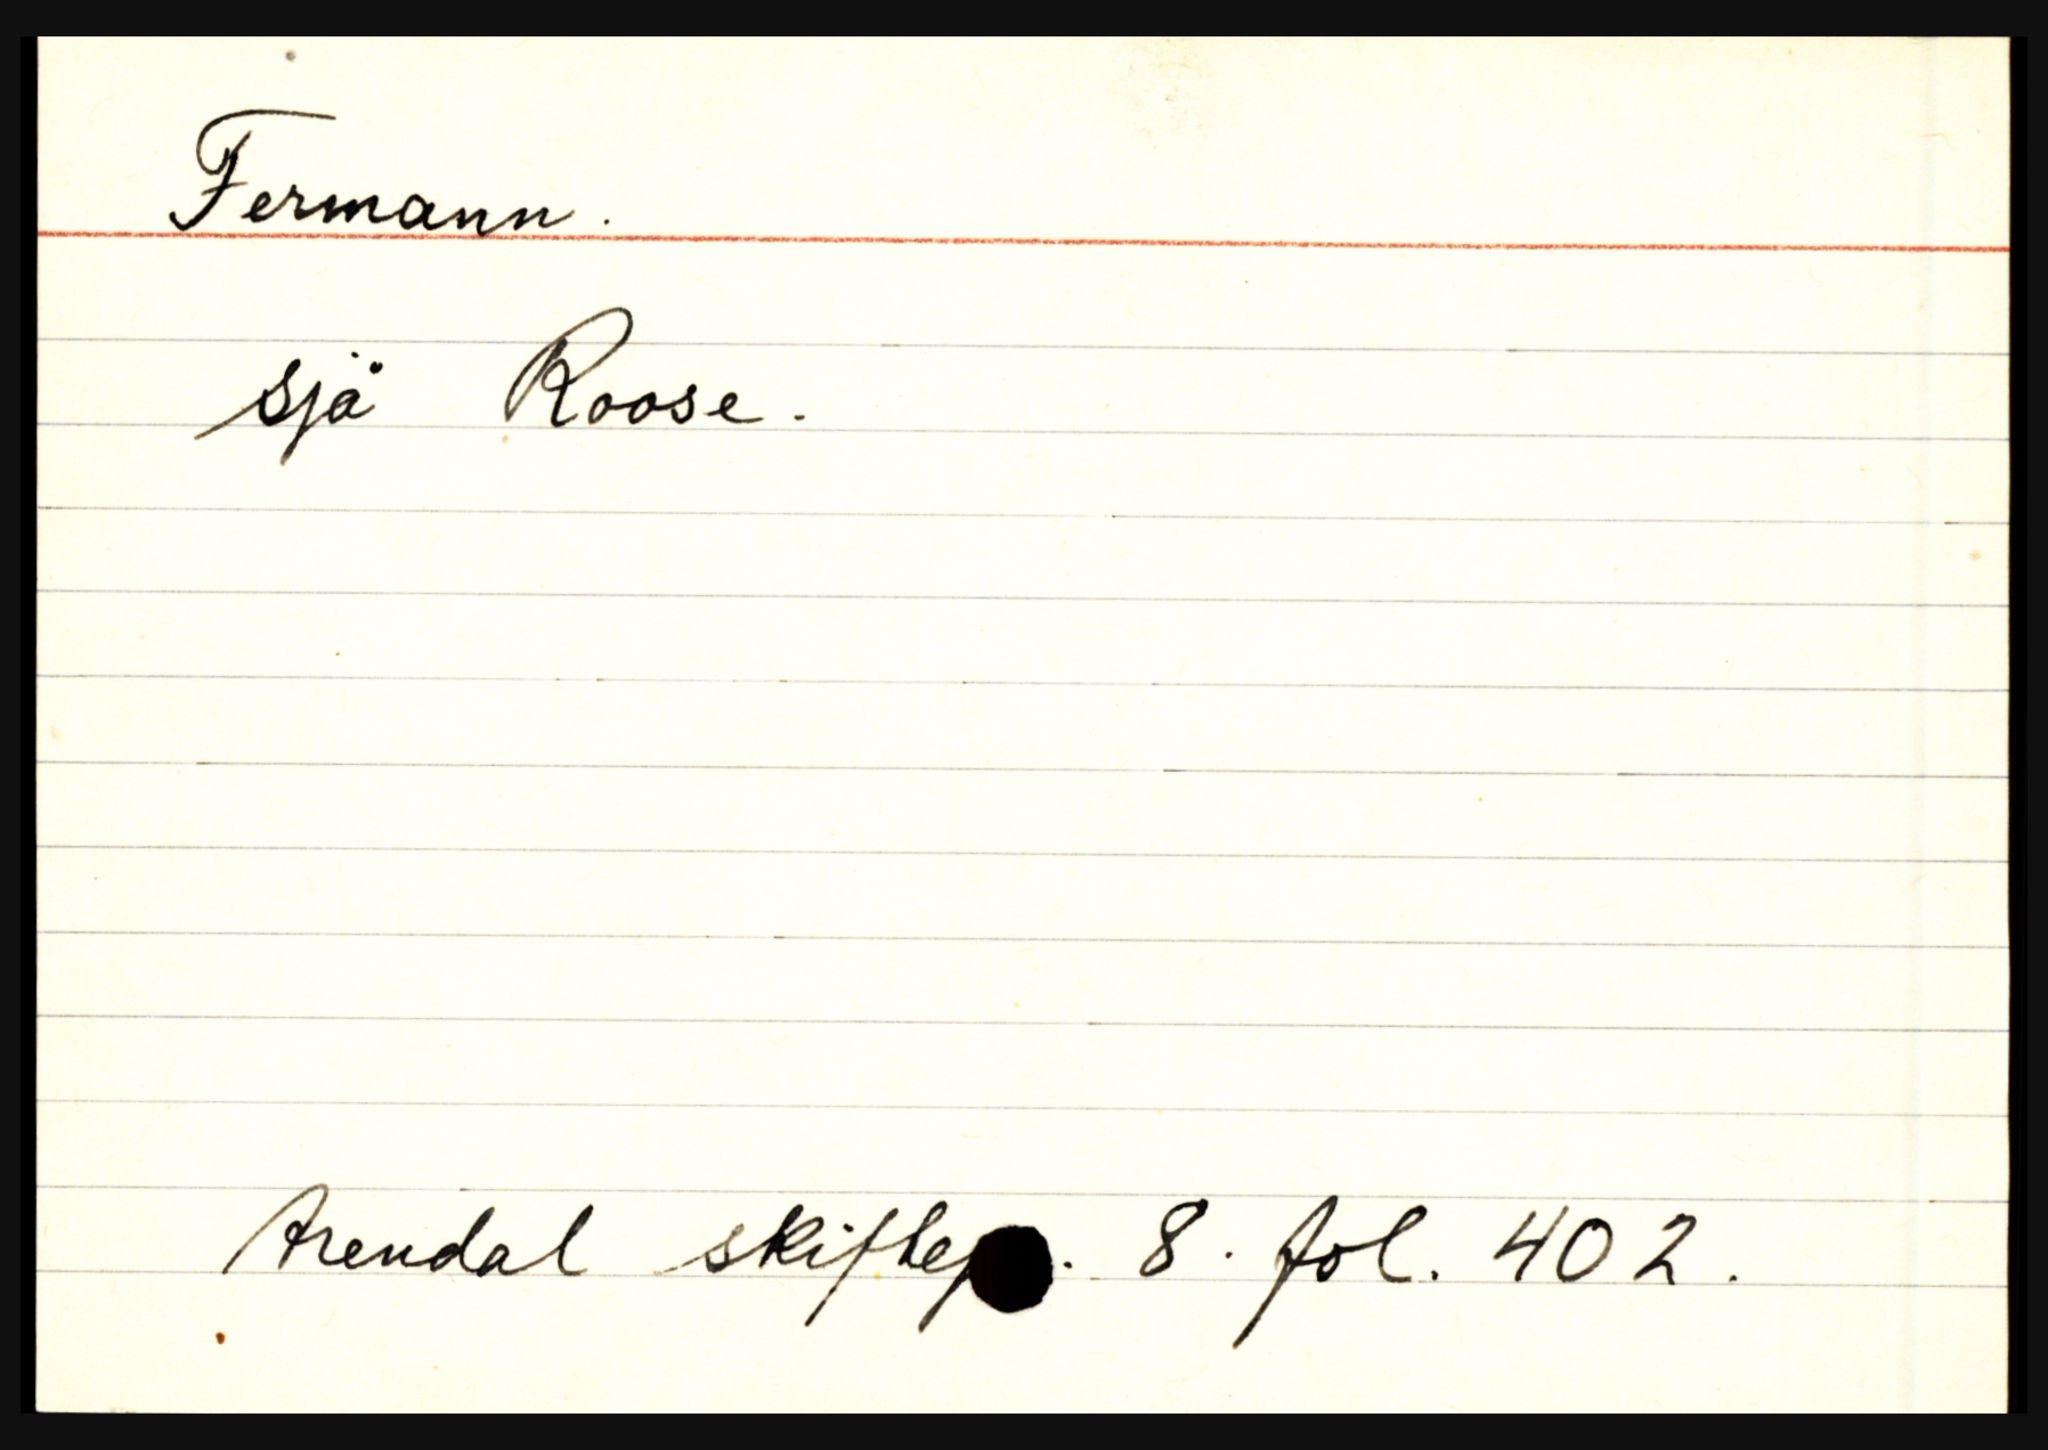 Fermann.
sjå Roose.
Arendal skiftep. 8. fol. 402.